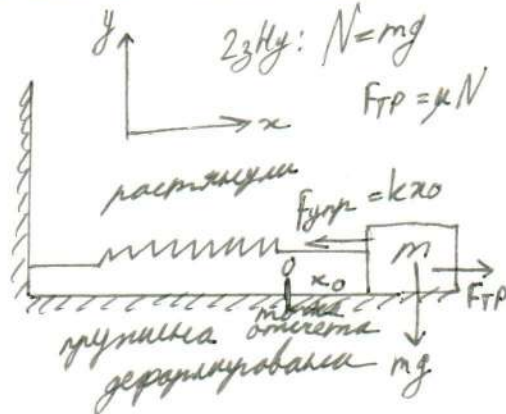 y
2зНу: N=mg
Fтр=μN
x
растянули
Fупр=kx₀
m
0
x₀
Fтр
точка
отсчета
mg
пружина
деформирована